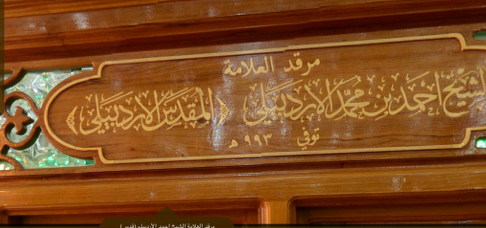 مرقد العلامة
الشيخ احمد بن محمد الاردبيلي (المقدس الاردبيلي)
توفي ٩٩٣ هـ
مرقد العلامة الشيخ احمد الأردبيلي (قدس)